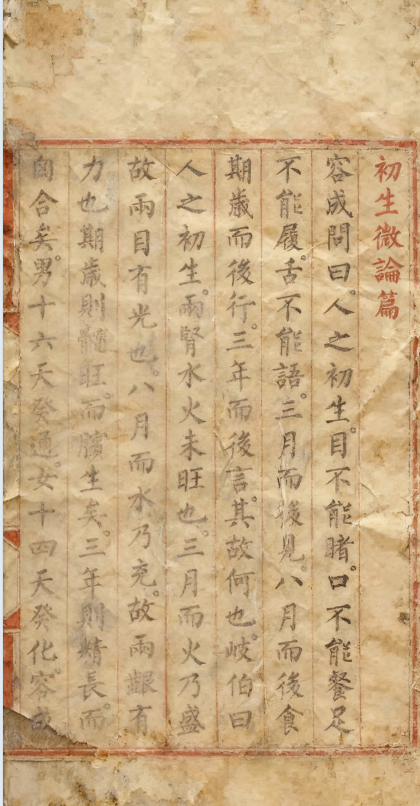 初生微論篇
容成問曰。人之初生。目不能睹。口不能餐。足
不能履。舌不能語。三月而後見。八月而後食
期歲而後行。三年而後言。其故何也。岐伯曰
人之初生。兩腎水火未旺也。三月而火乃盛
故兩目有光也。八月而水乃充。故兩齦有
力也。期歲則髓旺而臏生矣。三年則精長而
囟合矣。男十六天癸通。女十四天癸化。容成